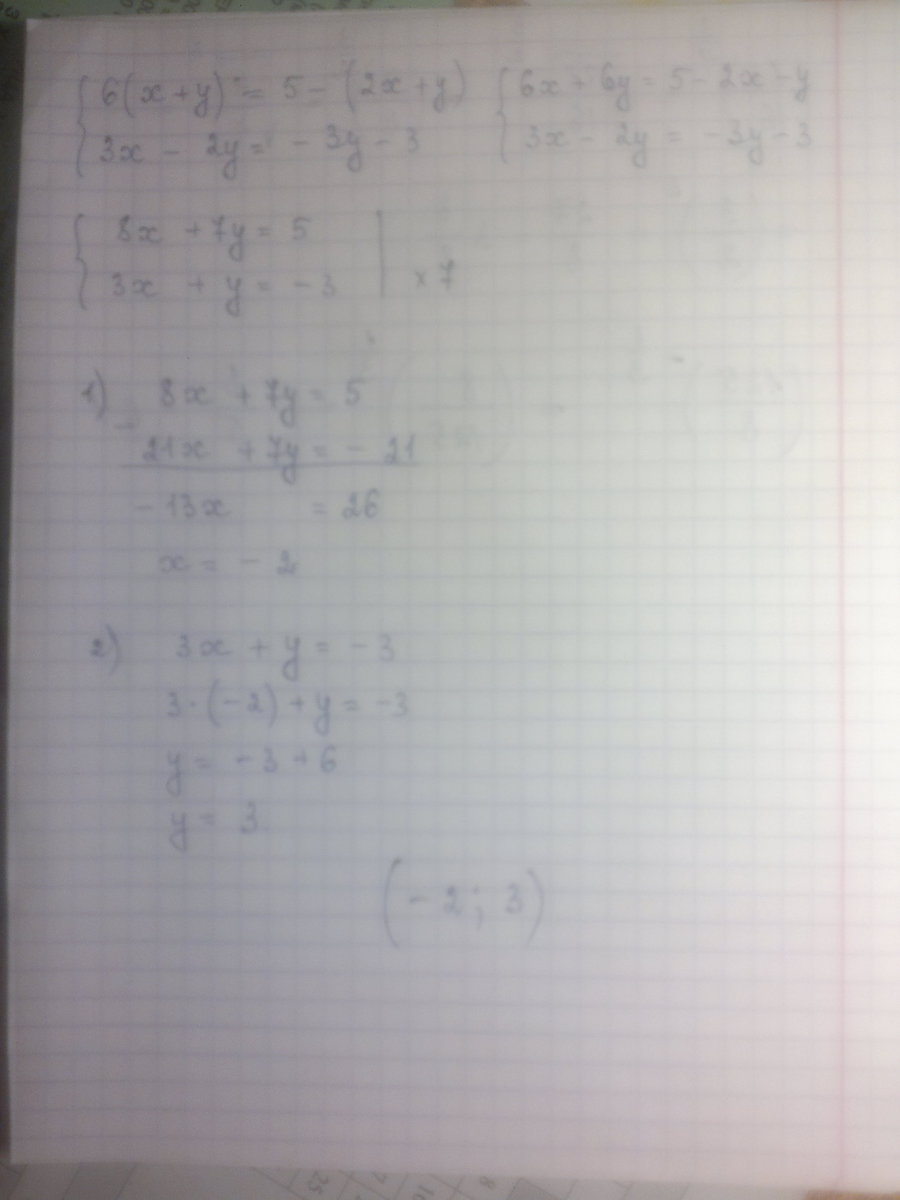 { 6(x+y) = 5 - (2x+y) { 6x + 6y = 5 - 2x - y
3x - 2y = - 3y - 3 3x - 2y = - 3y - 3
{ 8x + 7y = 5
3x + y = - 3 | × 7
1) 8x + 7y = 5
-
21x + 7y = - 21
- 13x = 26
x = - 2
2) 3x + y = - 3
3 · (-2) + y = -3
y = - 3 + 6
y = 3
(- 2 ; 3)